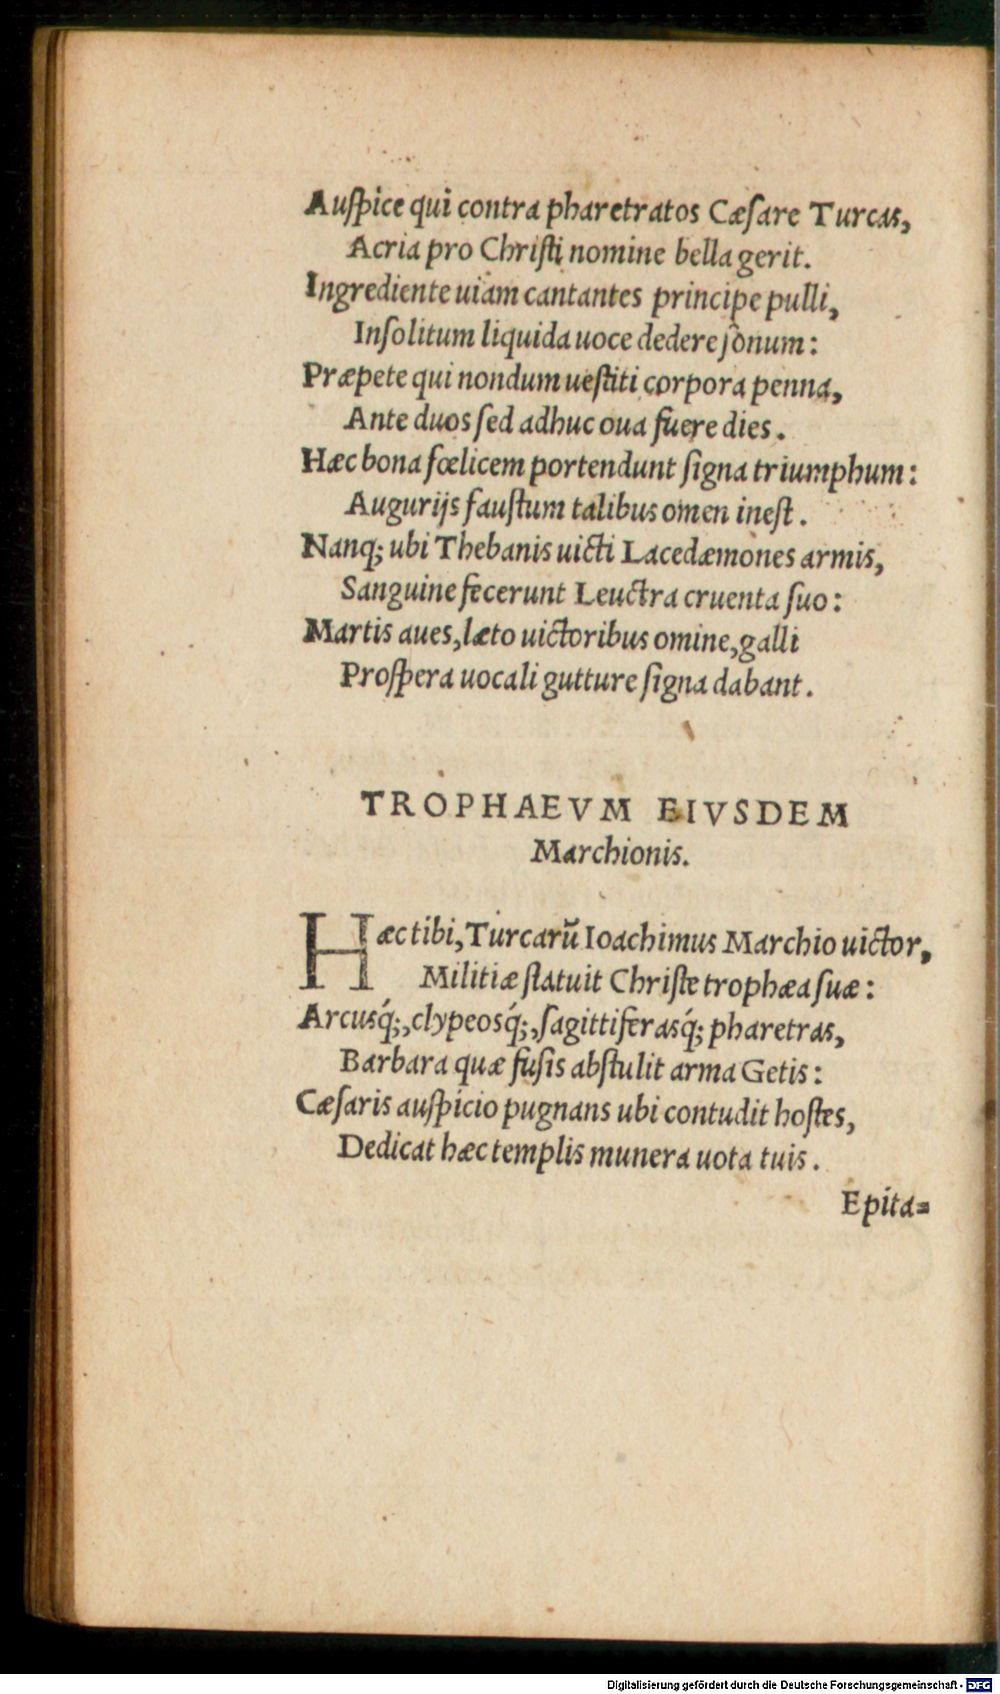 Auſpice qui contra pharetratos Cæſare Turcas,
Acria pro Chriſti nomine bella gerit.
Ingrediente uiam cantantes principe pulli,
Inſolitum liquida uoce dedere ſonum:
Præpete qui nondum ueſtiti corpora penna,
Ante duos ſed adhuc oua fuere dies.
Hæc bona fœlicem portendunt ſigna triumphum:
Augurijs fauſtum talibus omen ineſt.
Nanq; ubi Thebanis uicti Lacedæmones armis,
Sanguine fecerunt Leuctra cruenta ſuo:
Martis aues, læto uictoribus omine, galli
Proſpera uocali gutture ſigna dabant.
TROPHAEVM EIVSDEM
Marchionis.
Hæc tibi, Turcarũ Ioachimus Marchio uictor,
Militiæ ſtatuit Chriſte trophæa ſuæ:
Arcusq́;, clypeosq́;, ſagittiferasq́; pharetras,
Barbara quæ fuſis abſtulit arma Getis:
Cæſaris auſpicio pugnans ubi contudit hoſtes,
Dedicat hæc templis munera uota tuis.
Epita=
Digitalisierung gefördert durch die Deutsche Forschungsgemeinschaft - DFG